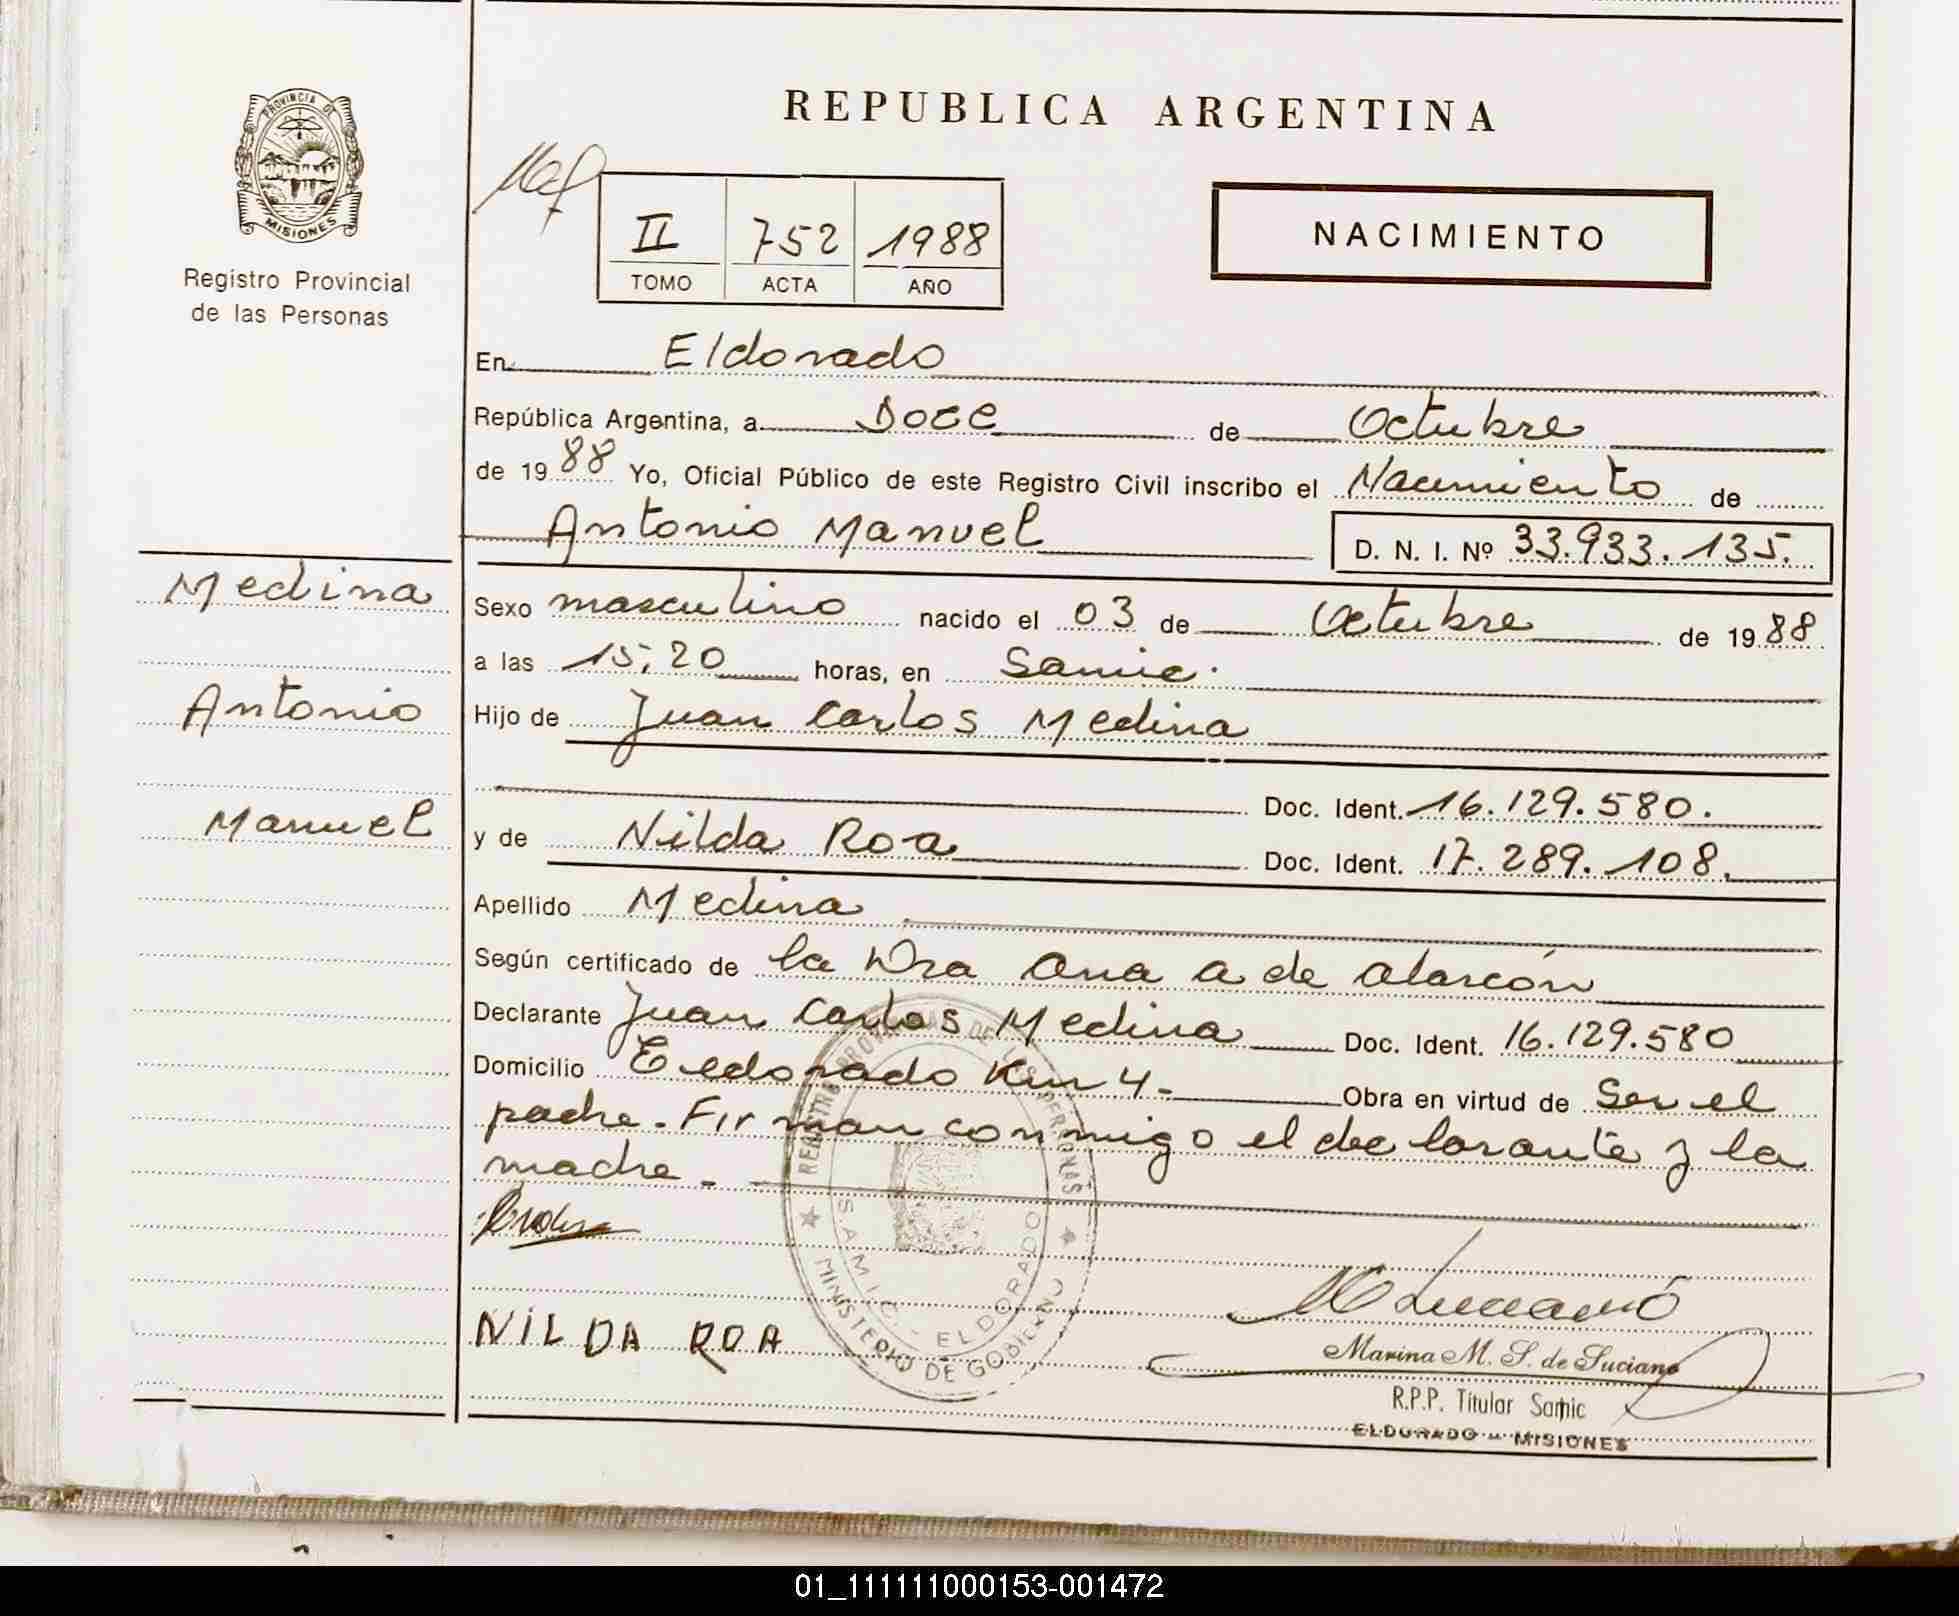 REPUBLICA ARGENTINA
PROVINCIA DE
MISIONES
Registro Provincial
de las Personas
II 752 1988
TOMO ACTA AÑO
NACIMIENTO
En Eldorado
República Argentina, a Doce de Octubre
de 1988 Yo, Oficial Público de este Registro Civil inscribo el Nacimiento de
Antonio Manuel D. N. I. Nº 33.933.135.
Medina
Antonio
Manuel
Sexo masculino nacido el 03 de Octubre de 1988
a las 15,20 horas, en Samic.
Hijo de Juan Carlos Medina
Doc. Ident. 16.129.580.
y de Nilda Roa Doc. Ident. 17.289.108.
Apellido Medina
Según certificado de la Dra Ana A de Alarcón
Declarante Juan Carlos Medina Doc. Ident. 16.129.580
Domicilio Eldorado Km 4- Obra en virtud de Ser el
padre. Firman conmigo el declarante y la
madre.-
REGISTRO PROVINCIAL DE LAS PERSONAS
S.A.M.I.C. - ELDORADO
MINISTERIO DE GOBIERNO
NILDA ROA
Marina M. S. de Luciano
R.P.P. Titular Samic
ELDORADO - MISIONES
01_111111000153-001472